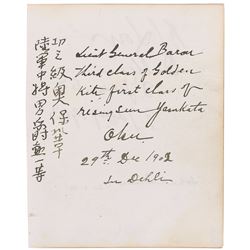 陸軍中将男爵勲一等
功三級奥保鞏
Lieut General Baron
third class of Golden
kite first class of
rising sun Yasukata
Oku
29th Dec 1902
In Dehli